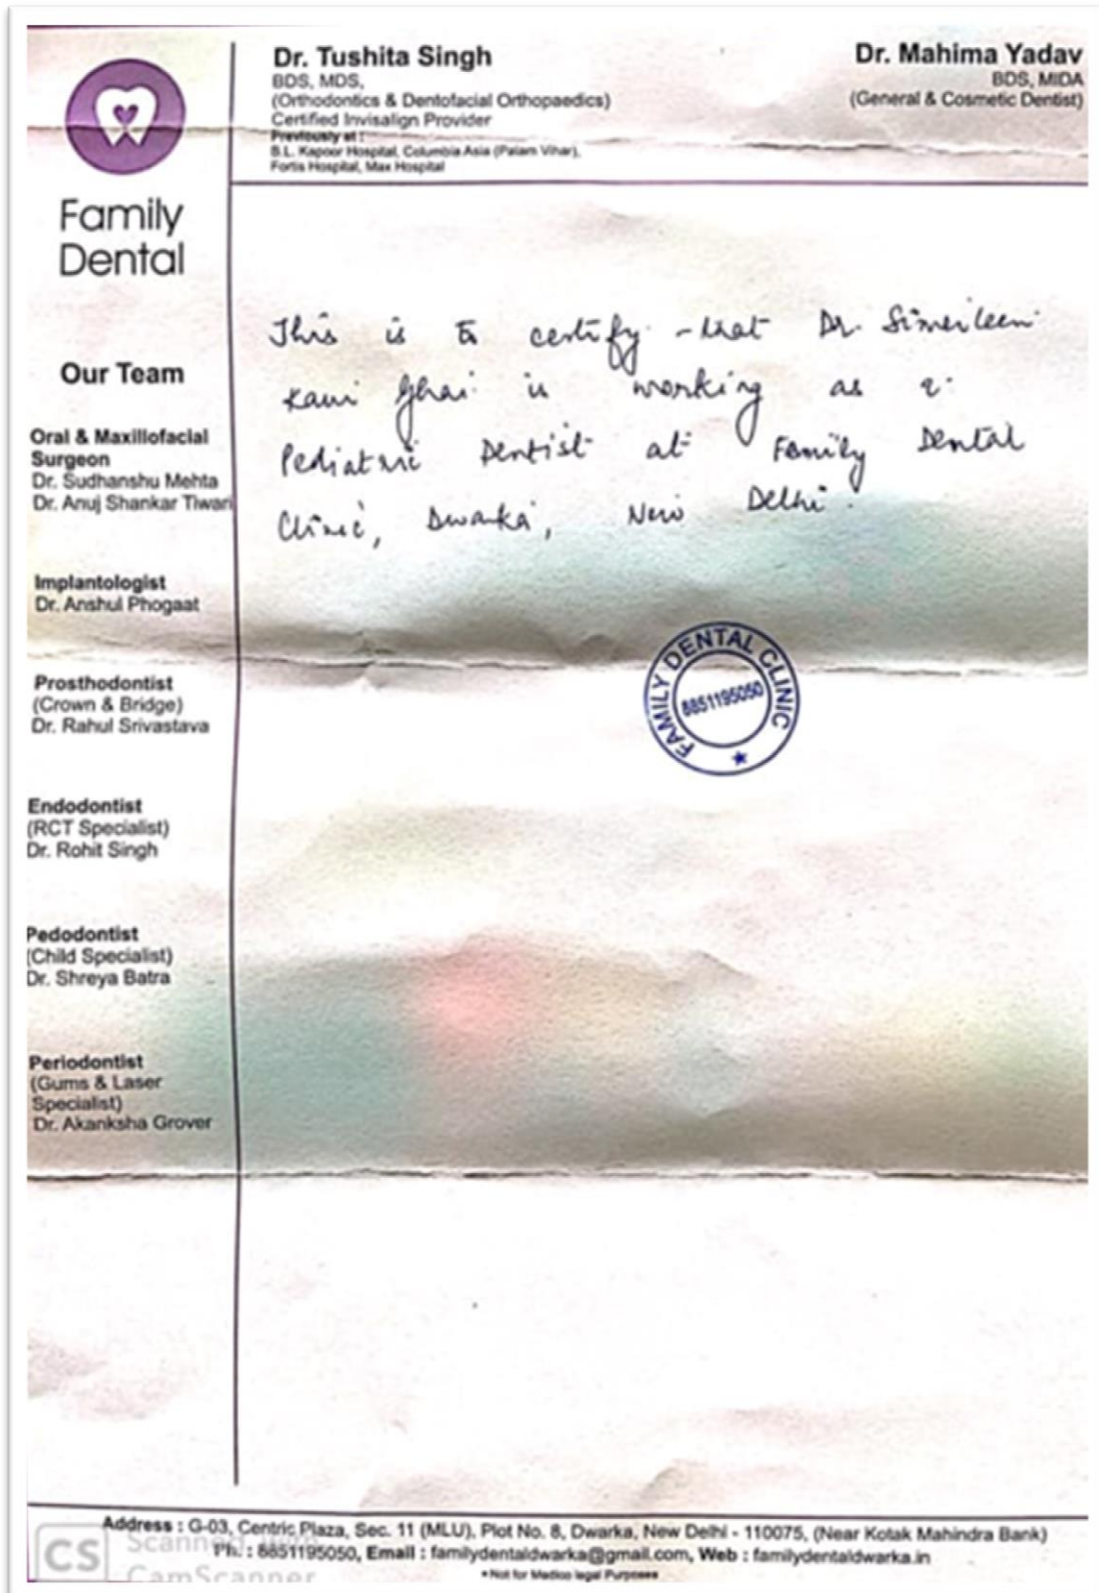 Dr. Tushita Singh
BDS, MDS,
(Orthodontics & Dentofacial Orthopaedics)
Certified Invisalign Provider
Previously at :
B.L. Kapoor Hospital, Columbia Asia (Palam Vihar),
Fortis Hospital, Max Hospital
Dr. Mahima Yadav
BDS, MIDA
(General & Cosmetic Dentist)
Family
Dental
Our Team
Oral & Maxillofacial
Surgeon
Dr. Sudhanshu Mehta
Dr. Anuj Shankar Tiwari
Implantologist
Dr. Anshul Phogaat
Prosthodontist
(Crown & Bridge)
Dr. Rahul Srivastava
Endodontist
(RCT Specialist)
Dr. Rohit Singh
Pedodontist
(Child Specialist)
Dr. Shreya Batra
Periodontist
(Gums & Laser
Specialist)
Dr. Akanksha Grover
This is to certify that Dr. Simerleen
Kaur Ghai is working as a
Pediatric Dentist at Family Dental
Clinic, Dwarka, New Delhi.
FAMILY DENTAL CLINIC
8851195050
Address : G-03, Centric Plaza, Sec. 11 (MLU), Plot No. 8, Dwarka, New Delhi - 110075, (Near Kotak Mahindra Bank)
Ph. : 8851195050, Email : familydentaldwarka@gmail.com, Web : familydentaldwarka.in
* Not for Medico legal Purposes
CS
Scanned with
CamScanner